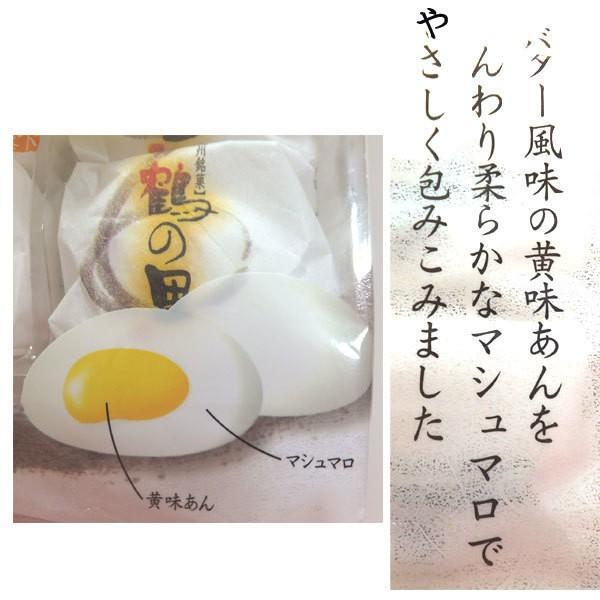 バター風味の黄味あんを
んわり柔らかなマシュマロで
やさしく包みこみました
州銘菓】
鶴の里
マシュマロ
黄味あん